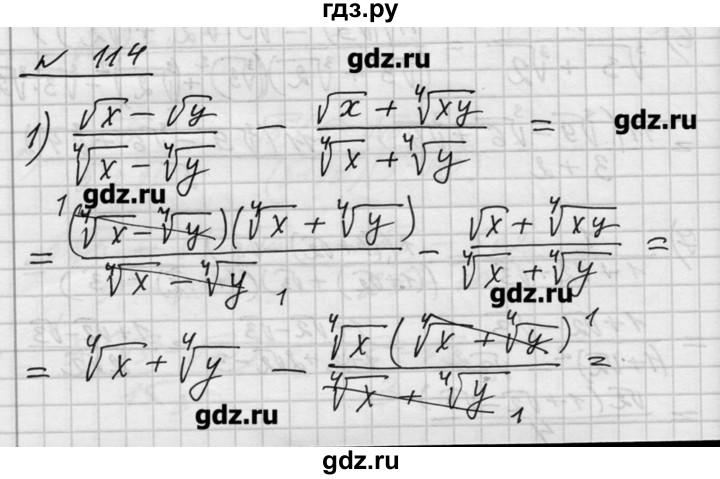 гдз.ру
№ 114
gdz.ru
1) (√x − √y)/(⁴√x − ⁴√y) − (√x + ⁴√xy)/(⁴√x + ⁴√y) =
gdz.ru
gdz.ru
= ((⁴√x − ⁴√y)¹(⁴√x + ⁴√y))/(⁴√x − ⁴√y)₁ − (√x + ⁴√xy)/(⁴√x + ⁴√y) =
gdz.ru
= ⁴√x + ⁴√y − (⁴√x (⁴√x + ⁴√y)¹)/(⁴√x + ⁴√y)₁ =
gdz.ru
gdz.ru